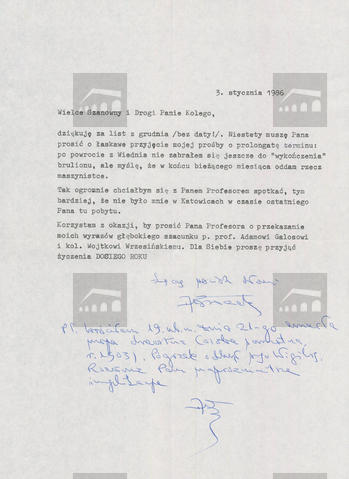 3. stycznia 1986
Wielce Szanowny i Drogi Panie Kolego,
dziękuję za list z grudnia /bez daty!/. Niestety muszę Pana
prosić o łaskawe przyjęcie mojej prośby o prolongatę terminu:
po powrocie z Wiednia nie zabrałem się jeszcze do "wykończenia"
brulionu, ale myślę, że w końcu bieżącego miesiąca oddam rzecz
maszynistce.
Tak ogromnie chciałbym się z Panem Profesorem spotkać, tym
bardziej, że nie było mnie w Katowicach w czasie ostatniego
Pana tu pobytu.
Korzystam z okazji, by prosić Pana Profesora o przekazanie
moich wyrazów głębokiego szacunku p. prof. Adamowi Galosowi
i kol. Wojtkowi Wrzesińskiemu. Dla Siebie proszę przyjąć
życzenia DOSIEGO ROKU
19.ub.m. 21-go zmarła
moja
r. 1903). Pogrzeb odbył się w Wigilię.